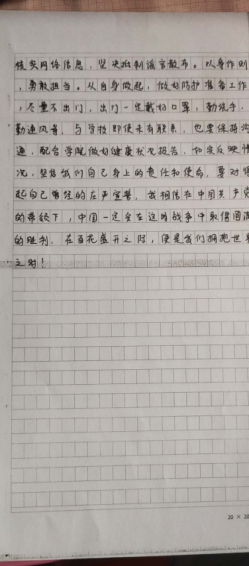 核实网络信息,坚决抵制谣言散布。以身作则
,勇敢担当。从自身做起,做好防护准备工作
,尽量不出门,出门一定戴好口罩,勤洗手、
勤通风者,与学校即使未有联系,也要保持沟
通,配合学院做好健康状况报告,如实反映情
况,坚信我们自己身上的责任和使命,要对得
起自己曾经的庄严宣誓,我相信在中国共产党
的带领下,中国一定会在这场战争中取得圆满
的胜利,在百花盛开之时,便是我们拥抱世界
之时!
20 × 20